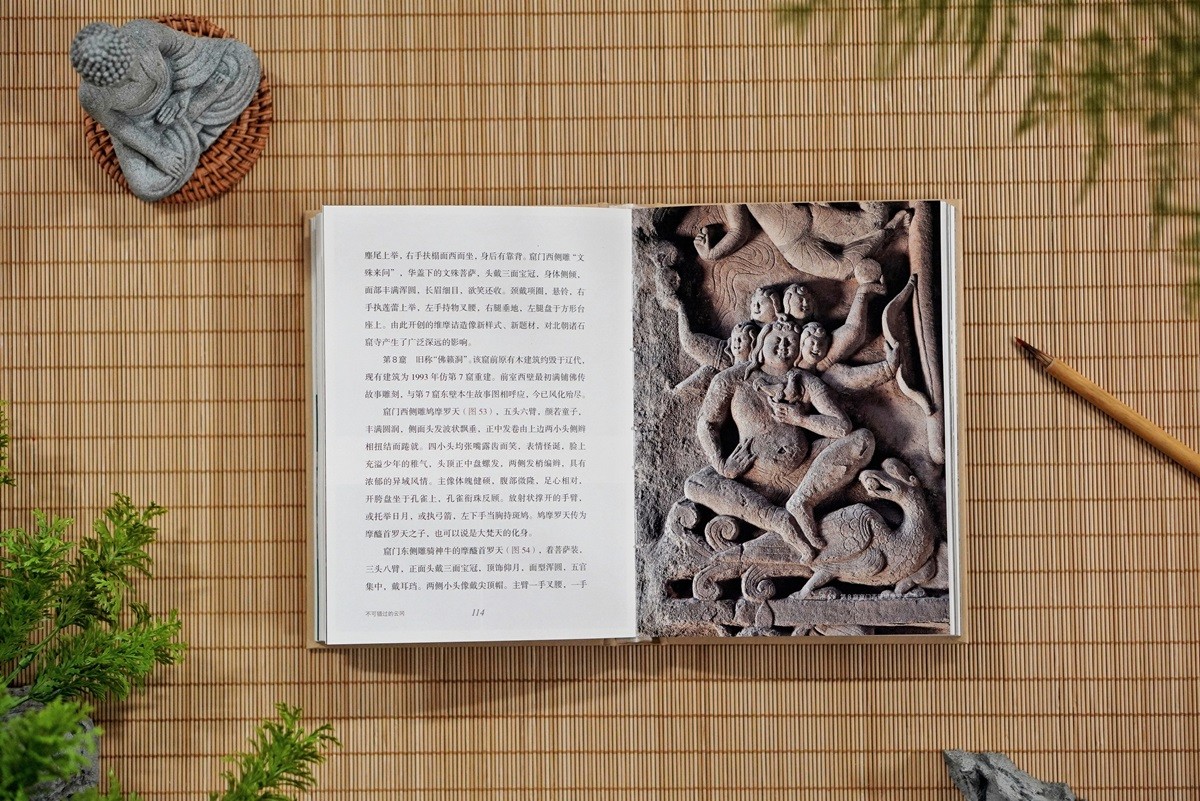 麈尾上举，右手扶榻面西而坐，身后有靠背。窟门西侧雕“文
殊来问”，华盖下的文殊菩萨，头戴三面宝冠，身体侧倾，
面部丰满浑圆，长眉细目，欲笑还收。颈戴项圈，悬铃，右
手执莲蕾上举，左手持物叉腰，右腿垂地，左腿盘于方形台
座上。由此开创的维摩诘造像新样式、新题材，对北朝诸石
窟寺产生了广泛深远的影响。
第8窟　旧称“佛籁洞”。该窟前原有木建筑约毁于辽代，
现有建筑为1993年仿第7窟重建。前室西壁最初满铺佛传
故事雕刻，与第7窟东壁本生故事图相呼应，今已风化殆尽。
窟门西侧雕鸠摩罗天（图53），五头六臂，颜若童子，
丰满圆润，侧面头发波状飘垂，正中发卷由上边两小头侧辫
相扭结而蜷就。四小头均张嘴露齿而笑，表情怪诞，脸上
充溢少年的稚气，头顶正中盘螺发，两侧发梢编辫，具有
浓郁的异域风情。主像体魄健硕，腹部微隆，足心相对，
开胯盘坐于孔雀上，孔雀衔珠反顾。放射状撑开的手臂，
或托举日月，或执弓箭，左下手当胸持斑鸠。鸠摩罗天传为
摩醯首罗天之子，也可以说是大梵天的化身。
窟门东侧雕骑神牛的摩醯首罗天（图54），着菩萨装，
三头八臂，正面头戴三面宝冠，顶饰仰月，面型浑圆，五官
集中，戴耳珰。两侧小头像戴尖顶帽。主臂一手叉腰，一手
不可错过的云冈 114
第8窟窟门西侧